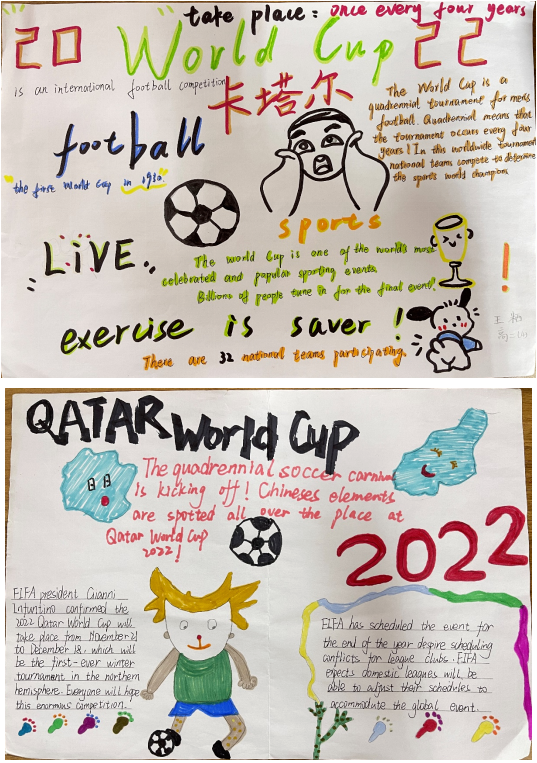 take place: once every four years
20 World Cup 22
is an international football competition
卡塔尔
The World Cup is a
quadrennial tournament for men's
football. Quadrennial means that
the tournament occurs every four
years! In this worldwide tournament
national teams compete to determine
the sport's world champions
football
the first World Cup in 1930.
sports
LiVE.
The world Cup is one of the world's most
celebrated and popular sporting events.
Billions of people tune in for the final event!
!
exercise is saver !
王
There are 32 national teams participating.
QATAR World Cup
The quadrennial soccer carnival
is kicking off! Chineses elements
are spotted all over the place at
Qatar World Cup
2022!
2022
FIFA president Gianni
Infuntino confirmed the
2022 Qatar World Cup will
take place from November 21
to December 18. which will
be the first-ever winter
tournament in the northern
hemisphere. Everyone will hope
this enormous competition.
FIFA has scheduled the event for
the end of the year despire scheduling
conflicts for league clubs. FIFA
expects domestic leagues will be
able to adjust their schedules to
accommodate the global event.